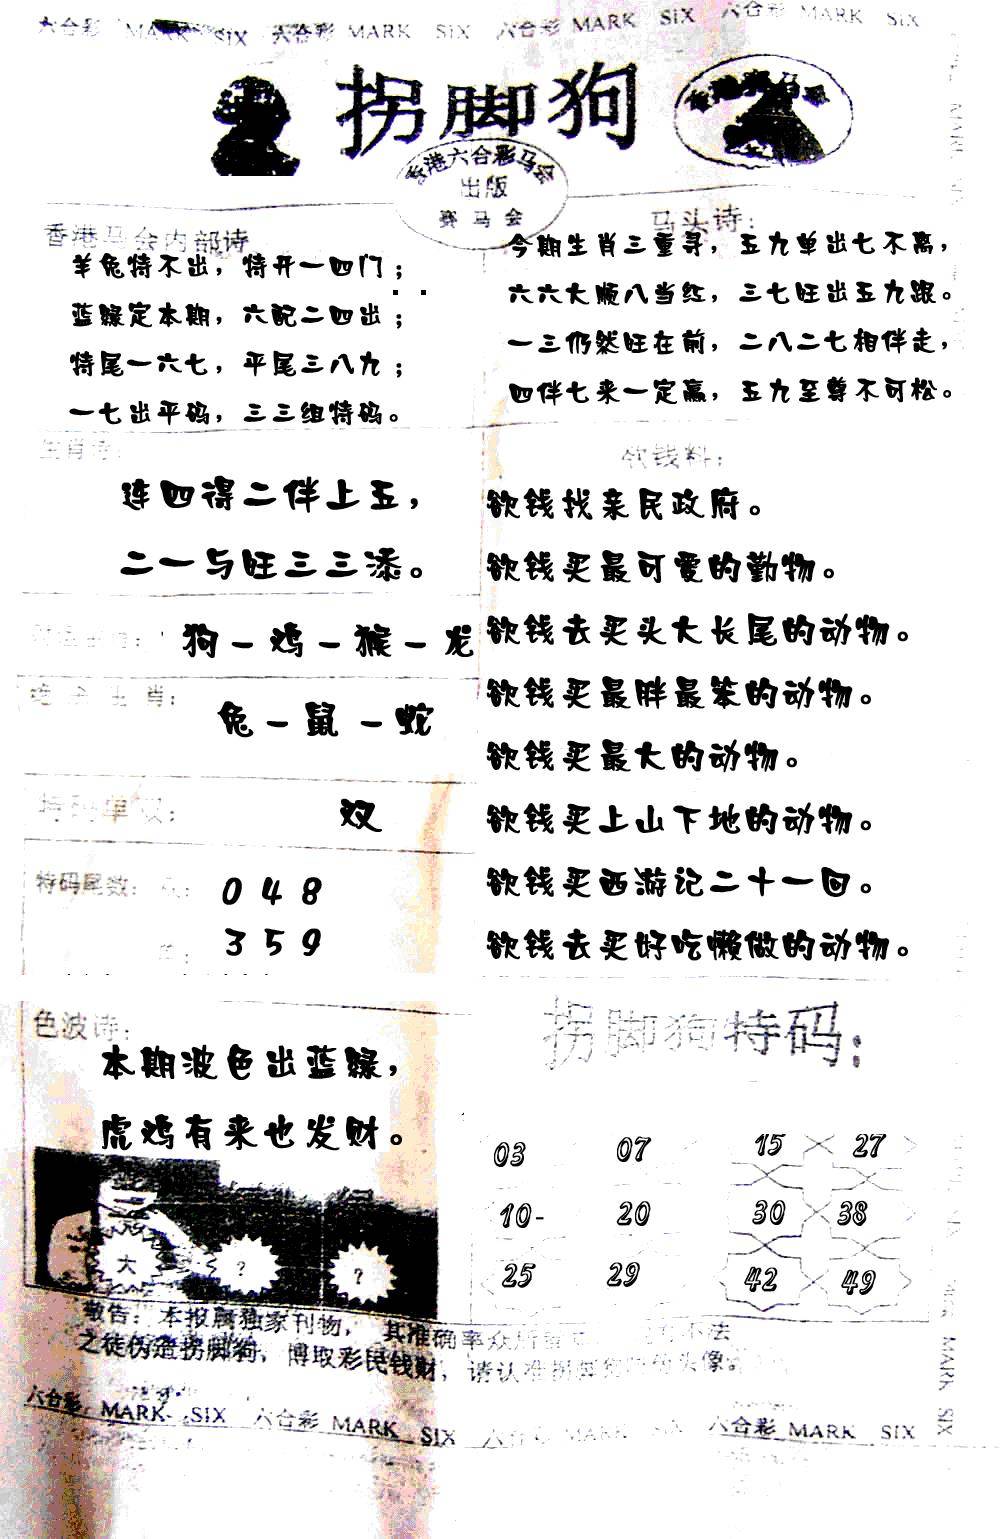 六合彩 MARK SIX 六合彩 MARK SIX 六合彩 MARK SIX 六合彩 MARK SIX
拐脚狗
香港六合彩马会
出版
赛马会
香港马会内部诗
羊兔特不出，特开一四门；
蓝绿定本期，六配二四出；
特尾一六七，平尾三八九；
一七出平码，三三组特码。
马头诗：
今期生肖三重寻，五九单出七不离，
六六大顺八当红，三七旺出五九跟。
一三仍然旺在前，二八二七相伴走，
四伴七来一定赢，五九至尊不可松。
生肖诗：
连四得二伴上五，
二一与旺三三添。
狗－鸡－猴－龙
绝杀生肖：
兔－鼠－蛇
特码单双：
双
特码尾数：
0 4 8
3 5 9
欲钱料：
欲钱找亲民政府。
欲钱买最可爱的動物。
欲钱去买头大长尾的动物。
欲钱买最胖最笨的动物。
欲钱买最大的动物。
欲钱买上山下地的动物。
欲钱买西游记二十一回。
欲钱去买好吃懒做的动物。
色波诗：
本期波色出蓝绿，
虎鸡有来也发财。
大 ? ?
拐脚狗特码：
03 07 15 27
10- 20 30 38
25 29 42 49
敬告：本报属独家刊物，其准确率众所 不法
之徒伪造拐脚狗，博取彩民钱财，请认准拐脚狗 头像。
六合彩 MARK SIX 六合彩 MARK SIX 六合彩 MARK SIX 六合彩 MARK SIX
MARK SIX